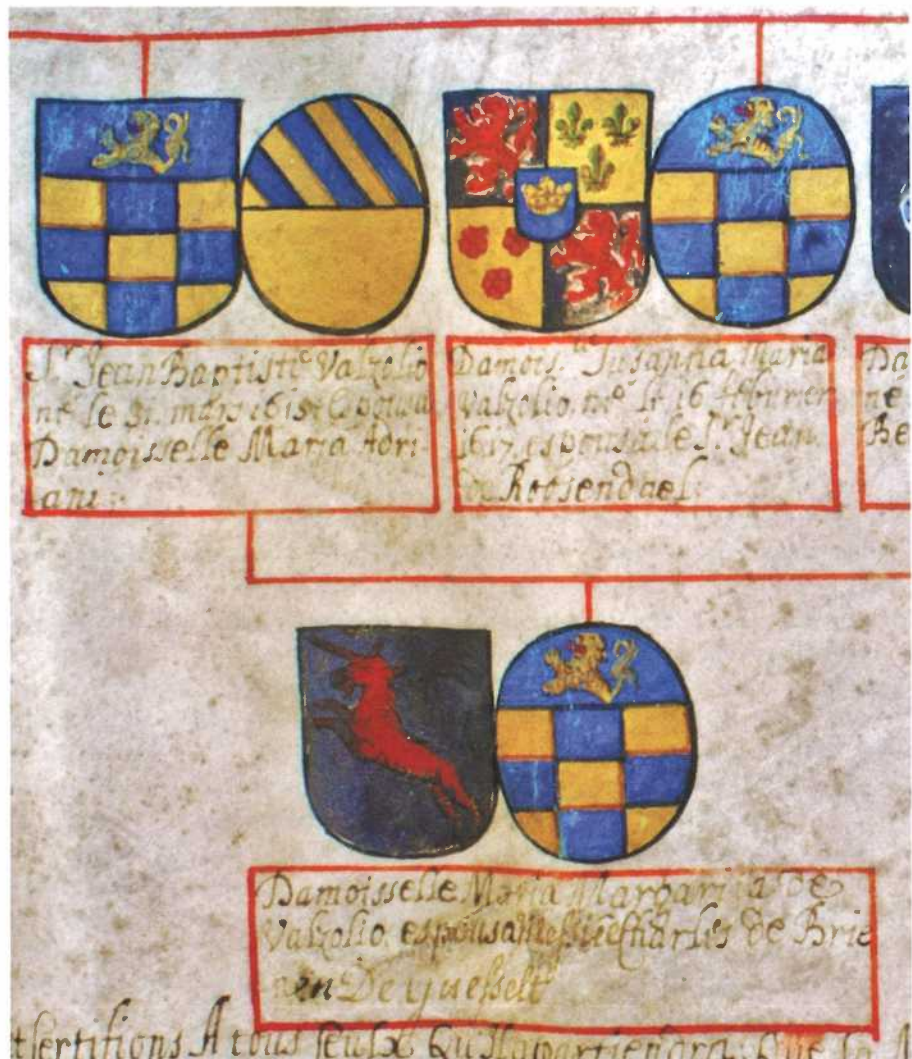 Sr Jean Baptiste Valzolio
né le 31. mars 1615 Espousa
Damoisselle Maria Adri-
ani:
Damois.lle Susanna Maria
Valzolio. né le 16 febvrier
1617 espousa le Sr Jean
Roosendael
Da
né
Be
Damoisselle Maria Margarita De
Valzolio. espousa Messire Charles de Brie
nen De
Certifions A tous Ceulx Qu'Ilapartiendra